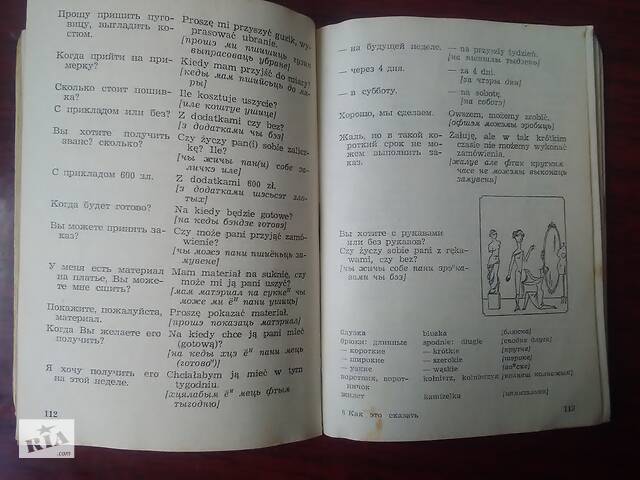 Прошу пришить пуго-
вицу, выгладить ко-
стюм.
Proszę mi przyszyć guzik, wy-
prasować ubranie.
[прошэ ми пшишиць гузик
выпрасоваць убране]
Когда прийти на при-
мерку?
Kiedy mam przyjść do miary?
[кеды мам пшийсьць до ма-
ры]
Сколько стоит пошив-
ка?
Ile kosztuje uszycie?
[иле коштуе ушице]
С прикладом или без?
Z dodatkami czy bez?
[з додатками чы бэз]
Вы хотите получить
аванс? сколько?
Czy życzy pan(i) sobie zalicz-
kę? Ile?
[чы жичы пан(и) собе за-
личкэ иле]
С прикладом 600 зл.
Z dodatkami 600 zł.
[з додатками шэсьсэт зло-
тых]
Когда будет готово?
Na kiedy będzie gotowe?
[на кеды бэндзе готовэ]
Вы можете принять за-
каз?
Czy może pani przyjąć zamó-
wienie?
[чы можэ пани пшиёньць за-
мувене]
У меня есть материал
на платье, Вы може-
те мне сшить?
Mam materiał na suknię, czy
może mi ją pani uszyć?
[мам матэриал на сукнеⁿ чы
може ми ёⁿ пани ушиць]
Покажите, пожалуйста,
материал.
Proszę pokazać materiał.
[прошэ показаць матэриал]
Когда Вы желаете его
получить?
Na kiedy chce ją pani mieć
(gotową)?
[на кеды хцэ ёⁿ пани мець
(готовоⁿ)]
Я хочу получить его
на этой неделе.
Chciałabym ją mieć w tym
tygodniu.
[хцялабым ёⁿ мець фтым
тыгодню]
112
— на будущей неделе.
— na przyszły tydzień.
[на пшишлы тыдзень]
— через 4 дня.
— za 4 dni.
[за чтэры дни]
— в субботу.
— na sobotę.
[на соботэ]
Хорошо, мы сделаем.
Owszem, możemy zrobić.
[офшэм можэмы зробиць]
Жаль, но в такой ко-
роткий срок не мо-
жем выполнить за-
каз.
Żałuję, ale w tak krótkim
czasie nie możemy wykonać
zamówienia.
[жалуе але фтак крутким
часе не можэмы выконаць
замувеня]
Вы хотите с рукавами
или без рукавов?
Czy życzy sobie pani z ręka-
wami, czy bez?
[чы жичы собе пани
вами чы бэз]
блузка
bluzka
[блюска]
брюки: длинные
spodnie: długie
[сподне длуге]
— короткие
— krótkie
[крутке]
— широкие
— szerokie
[шэроке]
— узкие
— wąskie
воротник, ворот-
ничок
kołnierz, kołnierzyk
жилет
kamizelka
[камизэлька]
5 Как это сказать
113
RIA
.com